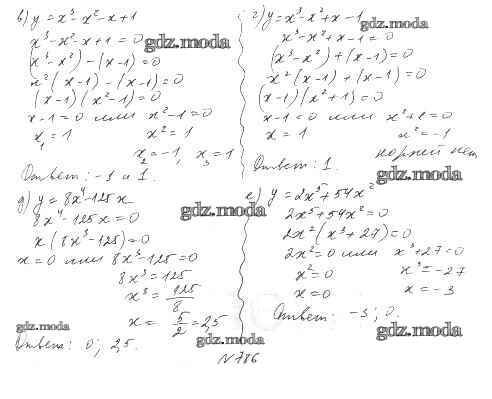 в) y = x³ - x² - x + 1
x³ - x² - x + 1 = 0
(x³ - x²) - (x - 1) = 0
x²(x - 1) - (x - 1) = 0
(x - 1)(x² - 1) = 0
x - 1 = 0 или x² - 1 = 0
x₁ = 1 x² = 1
x₂ = -1, x₃ = 1
Ответ: -1 и 1.
г) y = x³ - x² + x - 1
x³ - x² + x - 1 = 0
(x³ - x²) + (x - 1) = 0
x²(x - 1) + (x - 1) = 0
(x - 1)(x² + 1) = 0
x - 1 = 0 или x² + 1 = 0
x = 1 x² = -1
корней нет
Ответ: 1.
д) y = 8x⁴ - 125x
8x⁴ - 125x = 0
x(8x³ - 125) = 0
x = 0 или 8x³ - 125 = 0
8x³ = 125
x³ = 125/8
x = 5/2 = 2,5
Ответ: 0; 2,5.
е) y = 2x⁵ + 54x²
2x⁵ + 54x² = 0
2x²(x³ + 27) = 0
2x² = 0 или x³ + 27 = 0
x² = 0 x³ = -27
x = 0 x = -3
Ответ: -3; 0.
N 786
gdz.moda
gdz.moda
gdz.moda
gdz.moda
gdz.moda
gdz.moda
gdz.moda